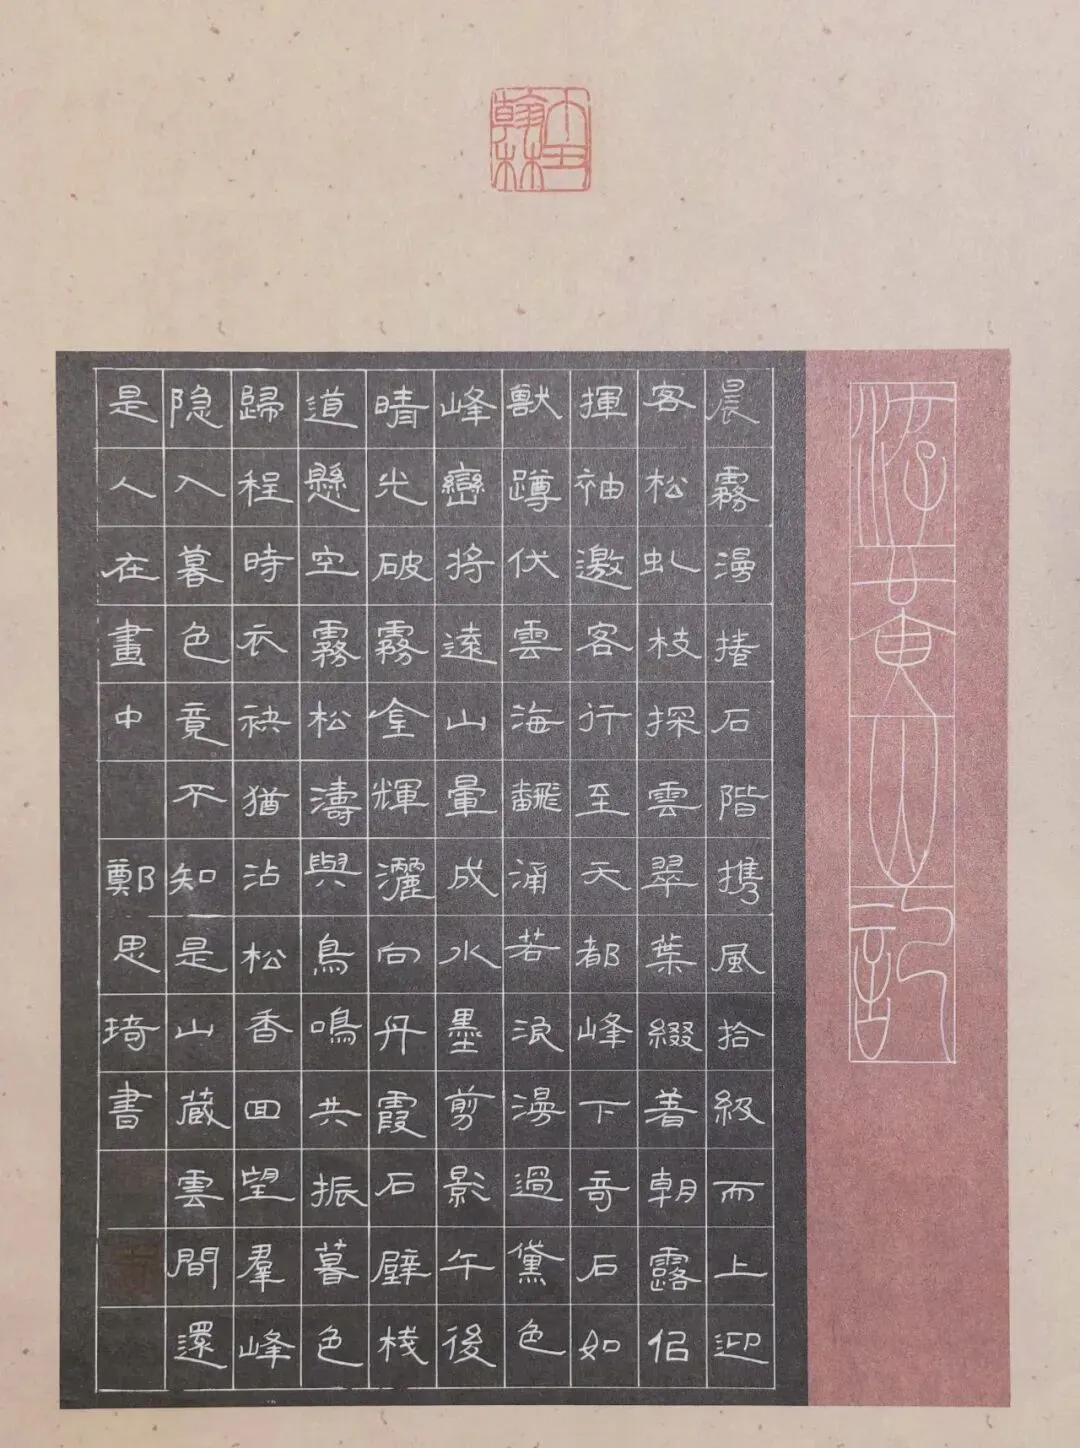 游黄山記
晨霧漫捲石階携風拾級而上迎
客松虬枝探雲翠葉綴着朝露佀
揮袖邀客行至天都峰下奇石如
獸蹲伏雲海飜涌若浪漫過黛色
峰巒將遠山暈成水墨剪影午後
晴光破霧金輝灑向丹霞石壁棧
道懸空霧松濤與鳥鳴共振暮色
歸程時衣袂猶沾松香回望羣峰
隐入暮色竟不知是山藏雲間還
是人在畫中 鄭思琦書